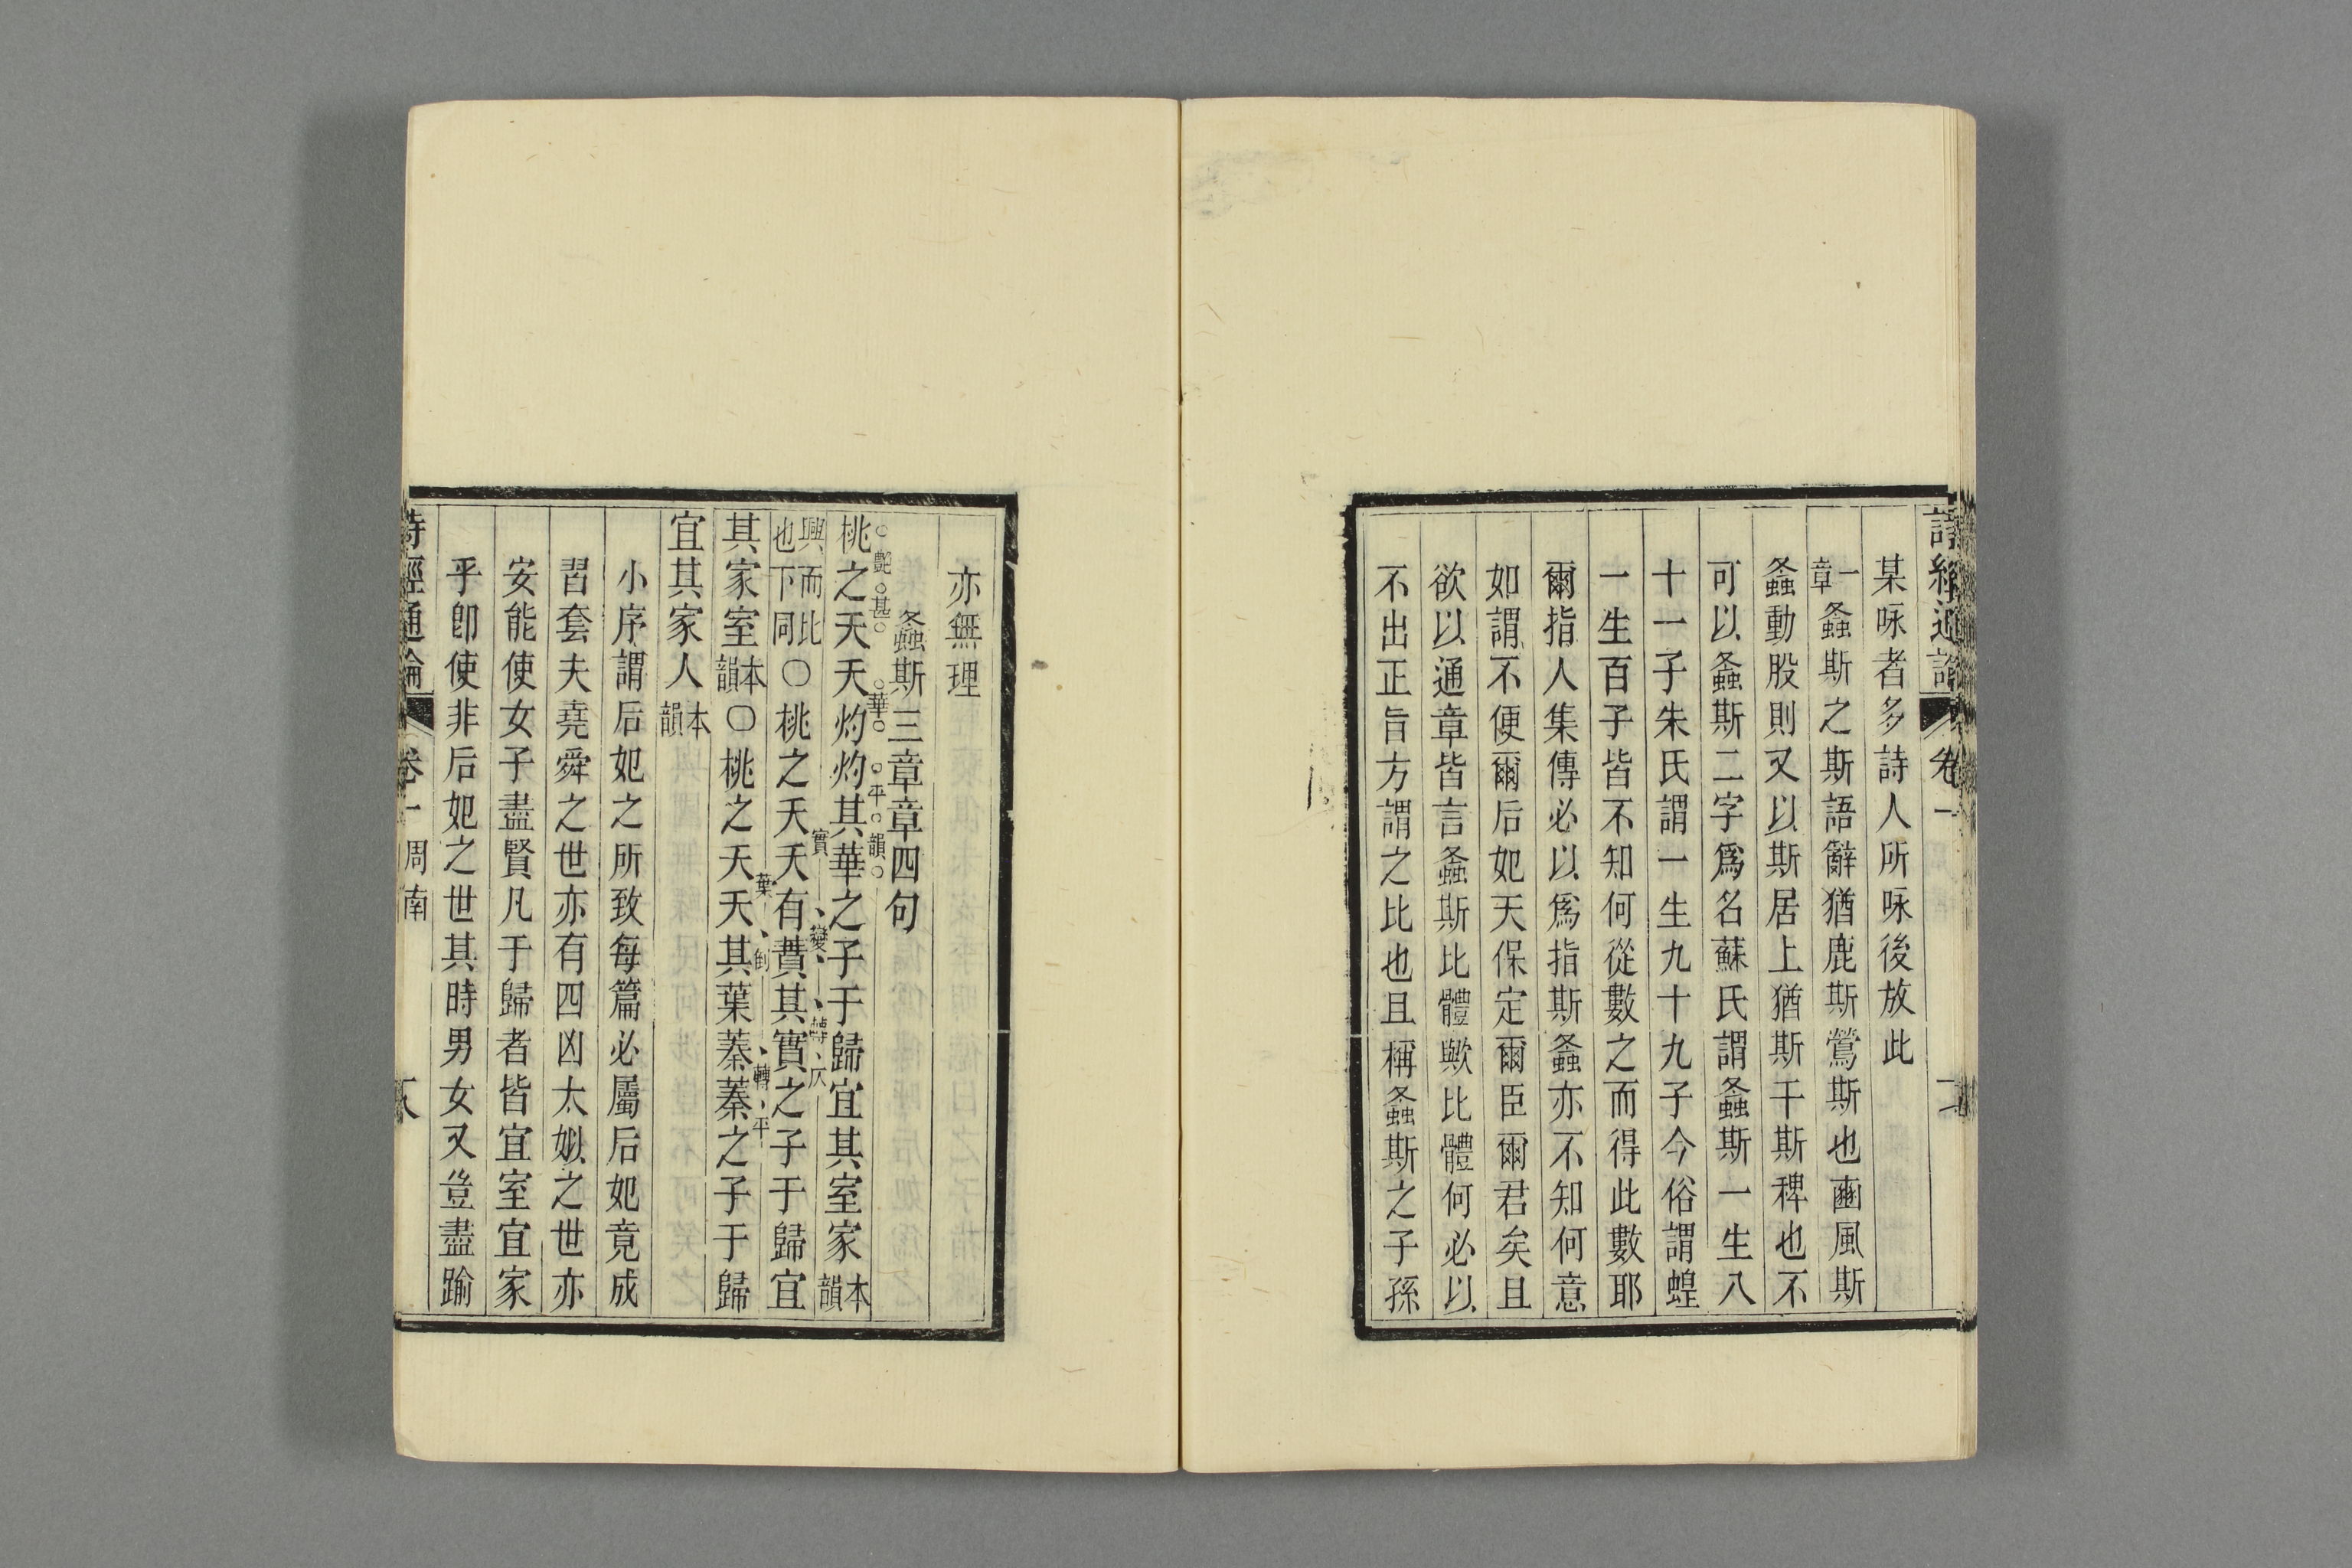 詩經通論
卷一
某咏者多詩人所咏後放此
一章螽斯之斯語辭猶鹿斯鶯斯也豳風斯
螽動股則又以斯居上猶斯干斯稗也不
可以螽斯二字爲名蘇氏謂螽斯一生八
十一子朱氏謂一生九十九子今俗謂蝗
一生百子皆不知何從數之而得此數耶
爾指人集傳必以爲指斯螽亦不知何意
如謂不便爾后妃天保定爾臣爾君矣且
欲以通章皆言螽斯比體歟比體何必以
不出正旨方謂之比也且稱螽斯之子孫
亦無理
螽斯三章章四句
艷甚華平韻
桃之夭夭灼灼其華之子于歸宜其室家本韻
實變轉仄
興而比也下同〇桃之夭夭有蕡其實之子于歸宜
葉倒轉平
其家室本韻〇桃之夭夭其葉蓁蓁之子于歸
宜其家人本韻
小序謂后妃之所致每篇必屬后妃竟成
習套夫堯舜之世亦有四凶太姒之世亦
安能使女子盡賢凡于歸者皆宜室宜家
乎卽使非后妃之世其時男女又豈盡踰
詩經通論
卷一 周南